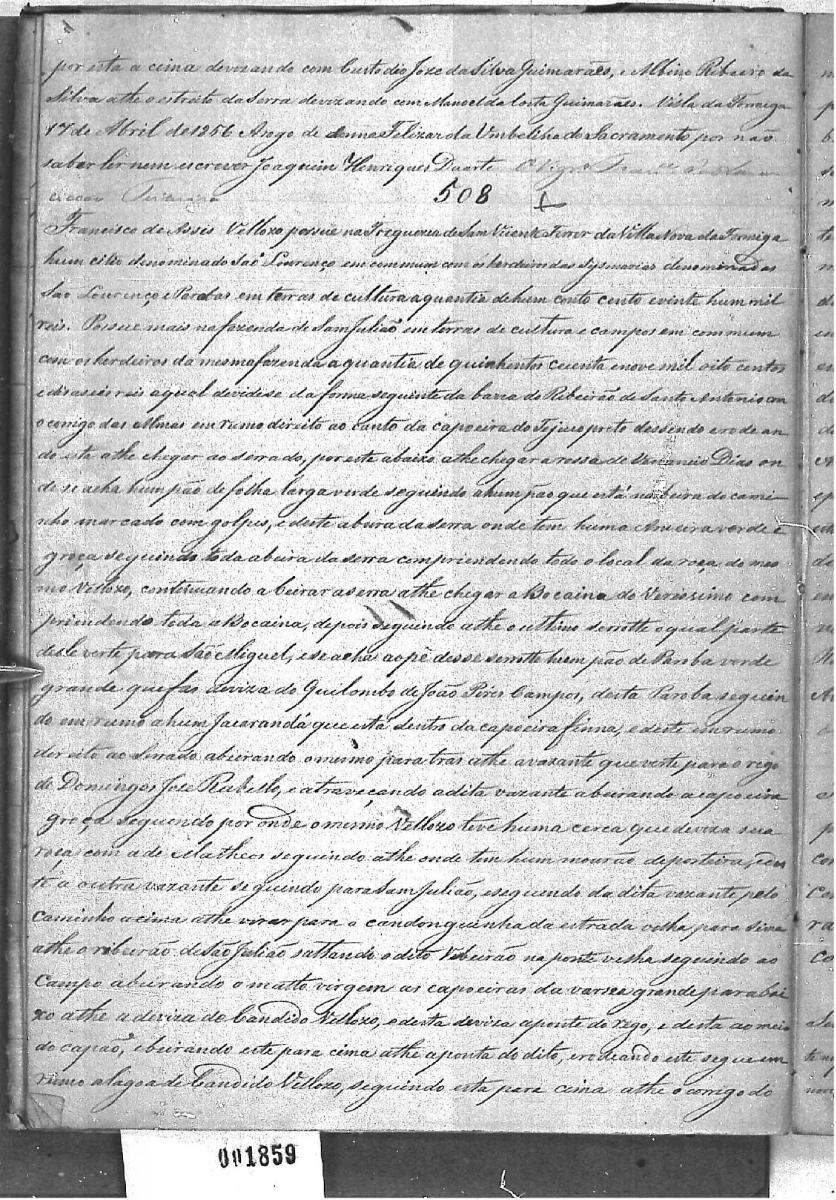 por esta a cima devizando com Custodio Joze da Silva Guimarães, e Albino Ribeiro da
Silva athe o estreito da Serra devizando com Manoel da Costa Guimarães. Villa da Formiga
17 de Abril de 1856 Arogo de donna Felizarda Umbelina do Sacramento por não
saber ler nem escrever Joaquim Henriques Duarte O Vigr.
508
Francisco de Assis Vellozo possue na Freguezia de Sam Vicente Ferrer da Villa Nova da Formiga
hum citio denominado São Lourenço em commum com os herdeiros das Sysmarias denominadas
São Lourenço e Parobas em terras de cultura a quantia de hum conto cento e vinte hum mil
reis. Possue mais na fazenda de Sam Julião em terras de cultura e campos em commum
com os herdeiros da mesma fazenda a quantia de quinhentos cecenta e nove mil oito centos
e dezaseis reis a qual devidese da forma seguinte da barra do Ribeirão de Santo Antonio com
o corrigo das Almas em rumo direito ao canto da capoeira do Tejuco preto dessendo e rode an
do esta athe chegar ao serrado, por este abaixo athe chegar a rossa de Venancio Dias on
de se acha hum páo de folha larga verde seguindo a hum páo que está na beira do cami
nho marcado com golpes, e deste a beira da serra onde tem huma Aroeira verde e
groça seguindo toda a beira da serra compriendendo todo o local da roça do mes
mo Vellozo, contenuando a beirar a serra athe chegar a Bocaina do Verissimo com
priendendo toda a Bocaina, depois seguindo athe o ultimo serrotte o qual parte
dele verte para São Miguel, e se acha ao pé desse serrotte hum páo de Paroba verde
grande que faz deviza do Quilombo de João Pires Campos, desta Paroba seguin
do em rumo a hum Jacarandá que está dentro da capoeira finna, e deste em rumo
direito ao Serrado abeirando o mesmo para tras athe a vazante que verte para o rego
de Domingos Jose Rabello, e atraveçando a dita vazante abeirando a capoeira
groça seguendo por onde o mesmo Vellozo teve huma cerca que deviza sua
roça com a de Matheos seguindo athe onde tem hum mourão de porteira,
a outra vazante seguindo para Sam Julião, e seguendo da dita vazante pelo
caminho a cima athe virar para a candonguinha da estrada velha, para sima
athe o ribeirão de São Julião saltando o dito Ribeirão na ponte velha seguindo ao
Campo abeirando o matto virgem as capoeiras da varsea grande para bai
xo athe a deviza de Candido Vellozo, e desta deviza a ponte do rego, e desta ao meio
do capão, e beirando este para cima athe a ponta do dito, e rodeando este segue em
rumo a lagoa de Candido Vellozo, seguindo esta para cima athe o corrigo do
001859